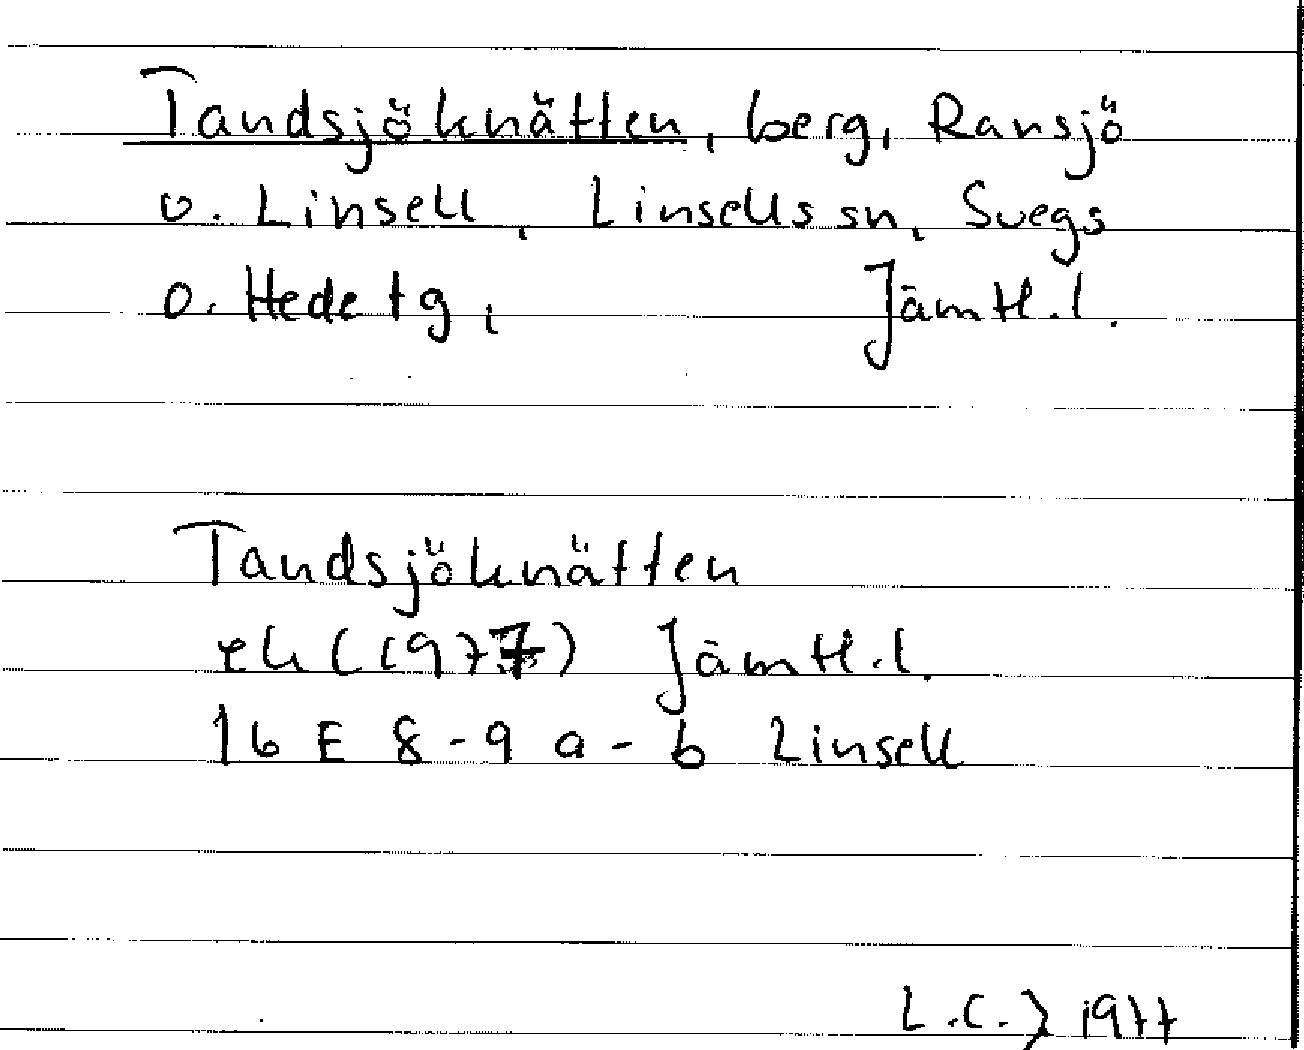 Tandsjöknätten, berg, Ransjö
o. Linsell, Linsells sn, Svegs
o. Hede tg, Jämtl. l.
Tandsjöknätten
ek (1977) Jämtl. l.
16 E 8-9 a-b Linsell
L.C. 1977